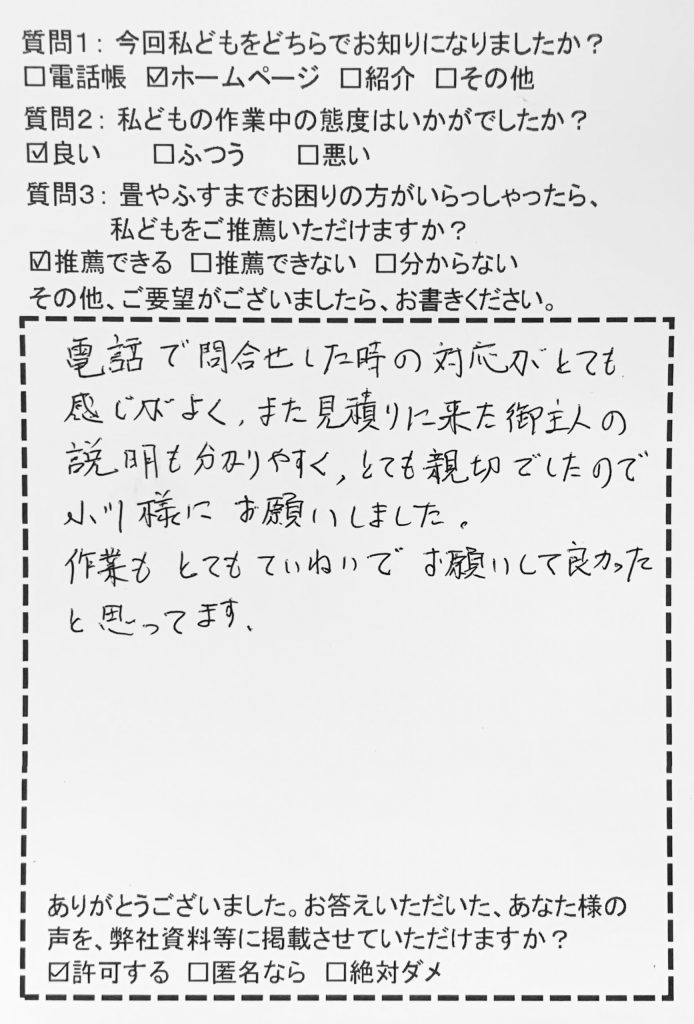 質問1：今回私どもをどちらでお知りになりましたか？
□電話帳 ☑ホームページ □紹介 □その他
質問2：私どもの作業中の態度はいかがでしたか？
☑良い □ふつう □悪い
質問3：畳やふすまでお困りの方がいらっしゃったら、
私どもをご推薦いただけますか？
☑推薦できる □推薦できない □分からない
その他、ご要望がございましたら、お書きください。
電話で問合せした時の対応がとても
感じがよく、また見積りに来た御主人の
説明も分かりやすく、とても親切でしたので
小川様にお願いしました。
作業もとてもていねいでお願いして良かった
と思ってます、
ありがとうございました。お答えいただいた、あなた様の
声を、弊社資料等に掲載させていただけますか？
☑許可する □匿名なら □絶対ダメ